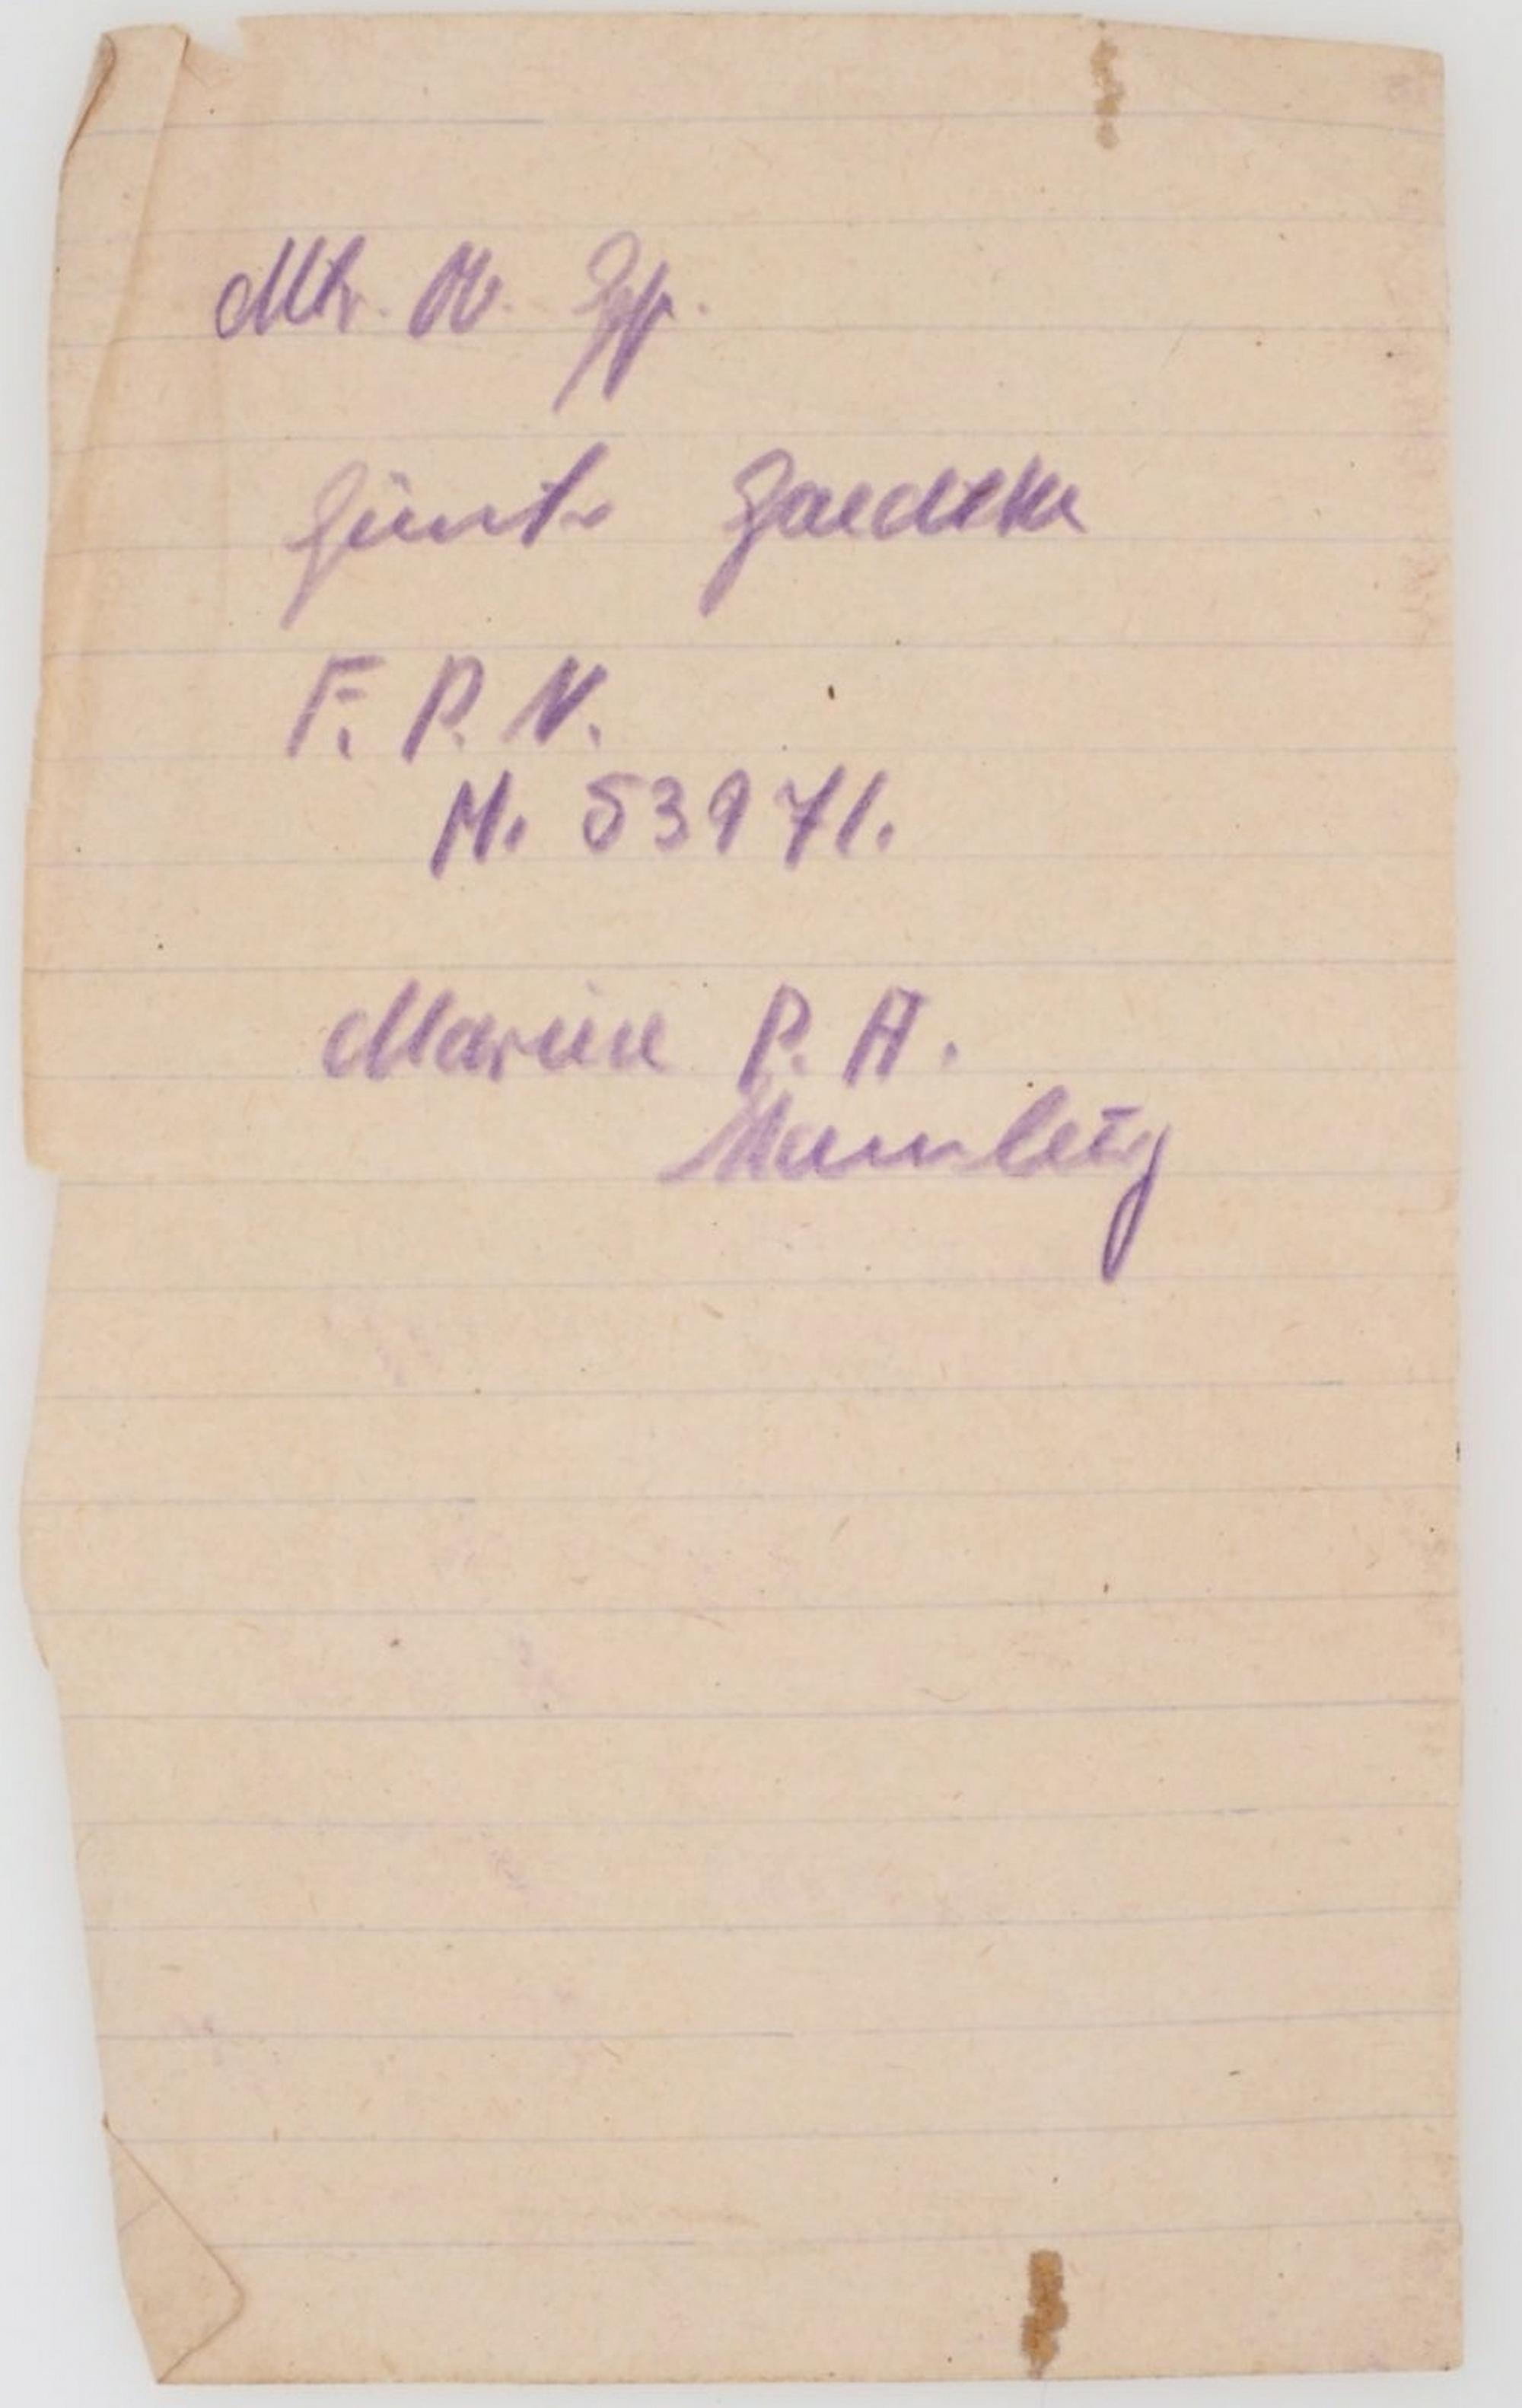 Mtr. Ob. Gfr.
Günter Gaedeke
F. P. N.
M. 53971.
Marine P. A.
Hamburg